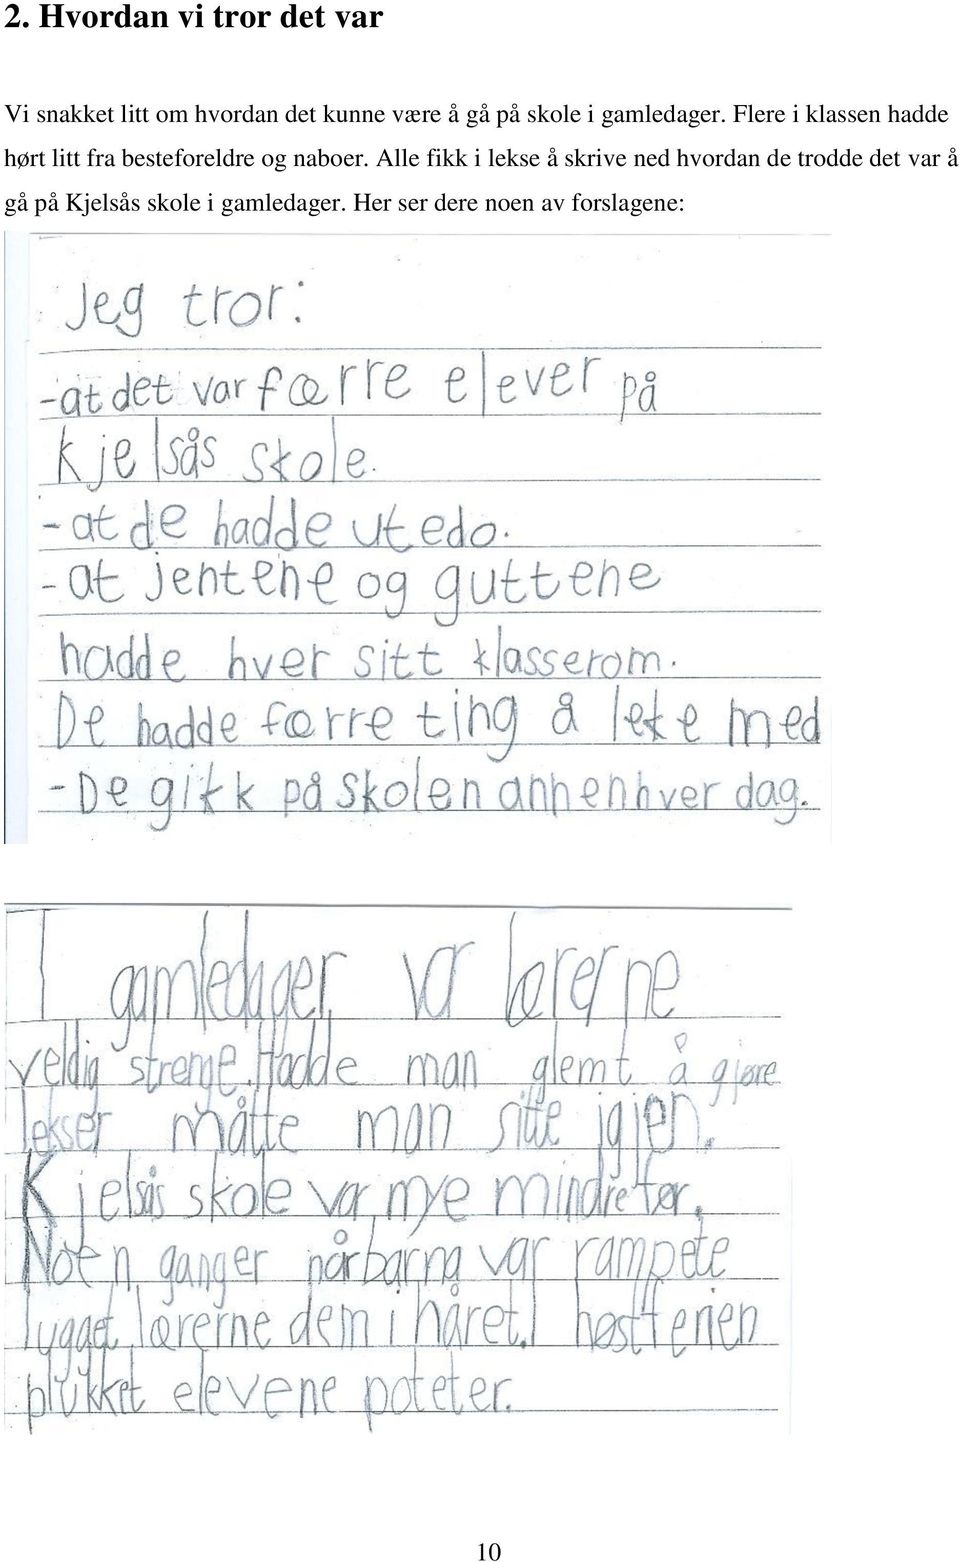 2. Hvordan vi tror det var
Vi snakket litt om hvordan det kunne være å gå på skole i gamledager. Flere i klassen hadde
hørt litt fra besteforeldre og naboer. Alle fikk i lekse å skrive ned hvordan de trodde det var å
gå på Kjelsås skole i gamledager. Her ser dere noen av forslagene:
Jeg tror:
-at det var færre elever på
Kjelsås skole.
-at de hadde utedo.
-at jentene og guttene
hadde hver sitt klasserom.
De hadde færre ting å leke med
-De gikk på skolen annenhver dag.
I gamledager var lærerne
veldig strenge. Hadde man glemt å gjøre
lekser måtte man sitte igjen.
Kjelsås skole var mye mindre før.
Noen ganger når barna var rampete
lugget lærerne dem i håret. I høstferien
plukket elevene poteter.
10